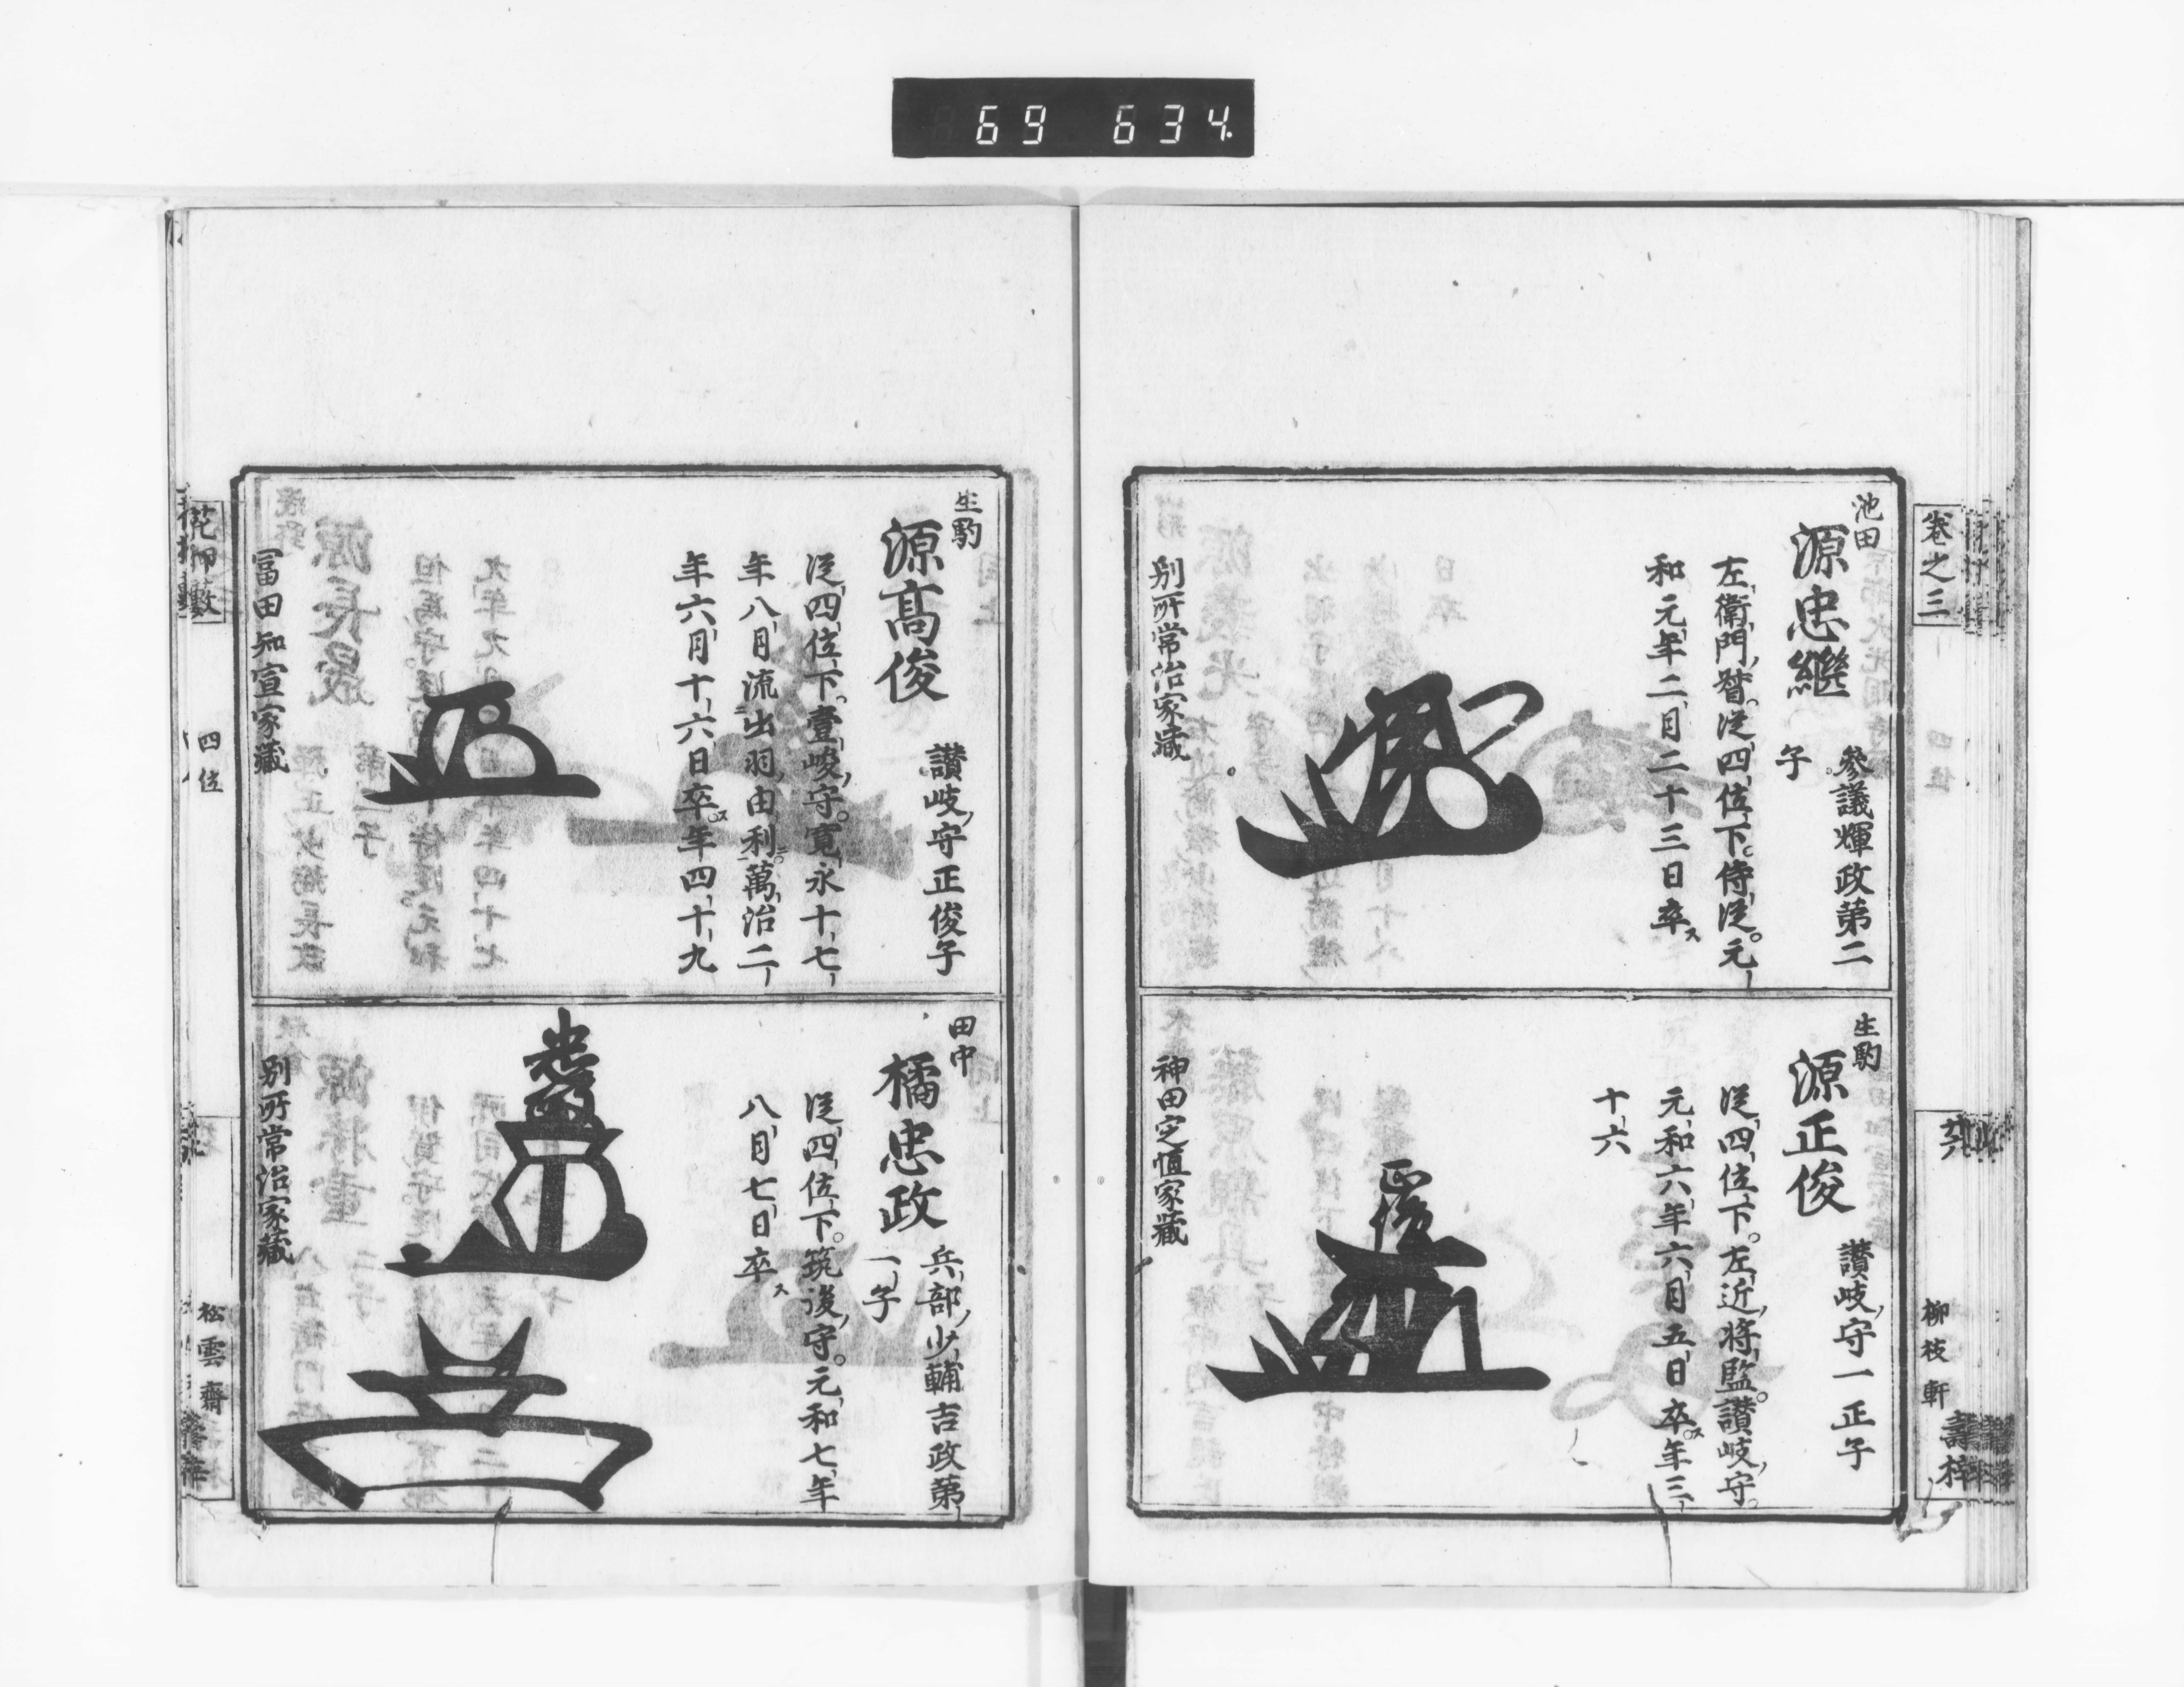 69 634
卷之三
柳枝軒
池田
源忠繼
參議輝政第二
子
左衛門督從四位下侍從元
和元年二月二十三日卒ス
別所常治家藏
生駒
源正俊
讃岐守一正子
從四位下左近將監讃岐守
元和六年六月五日卒ス年三
十六
神田定恒家藏
生駒
源髙俊
讃岐守正俊子
從四位下壹岐守寛永十七
年八月流出羽由利萬治二
年六月十六日卒ス年四十九
冨田知宣家藏
田中
橘忠政
兵部少輔吉政第
一子
從四位下筑後守元和七年
八月七日卒ス
別所常治家藏
花押藪
四位
松雲齋